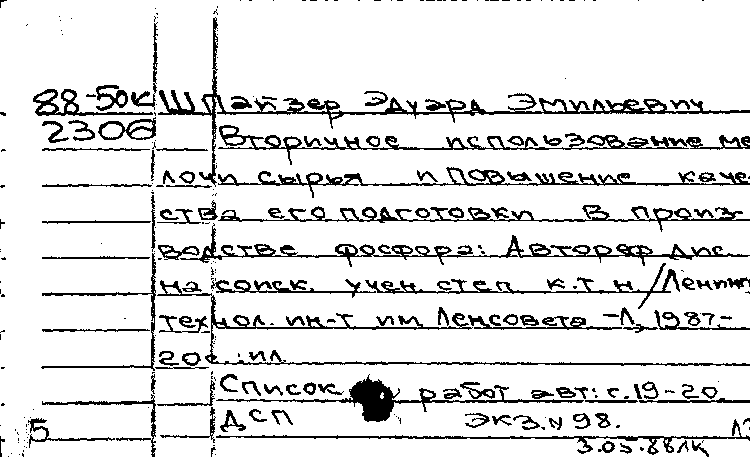 88-50к Шпайзер Эдуард Эмильевич
2306 Вторичное использование ме
лочи сырья и повышение каче
ства его подготовки в произ-
водстве фосфора: Автореф дис.
на соиск. учен степ к.т.н. / Ленинг
технол. ин-т им Ленсовета -Л, 1987.-
20с.: ил
Список работ авт: с.19-20.
ДСП экз. № 98.
5 3.05.88ЛК